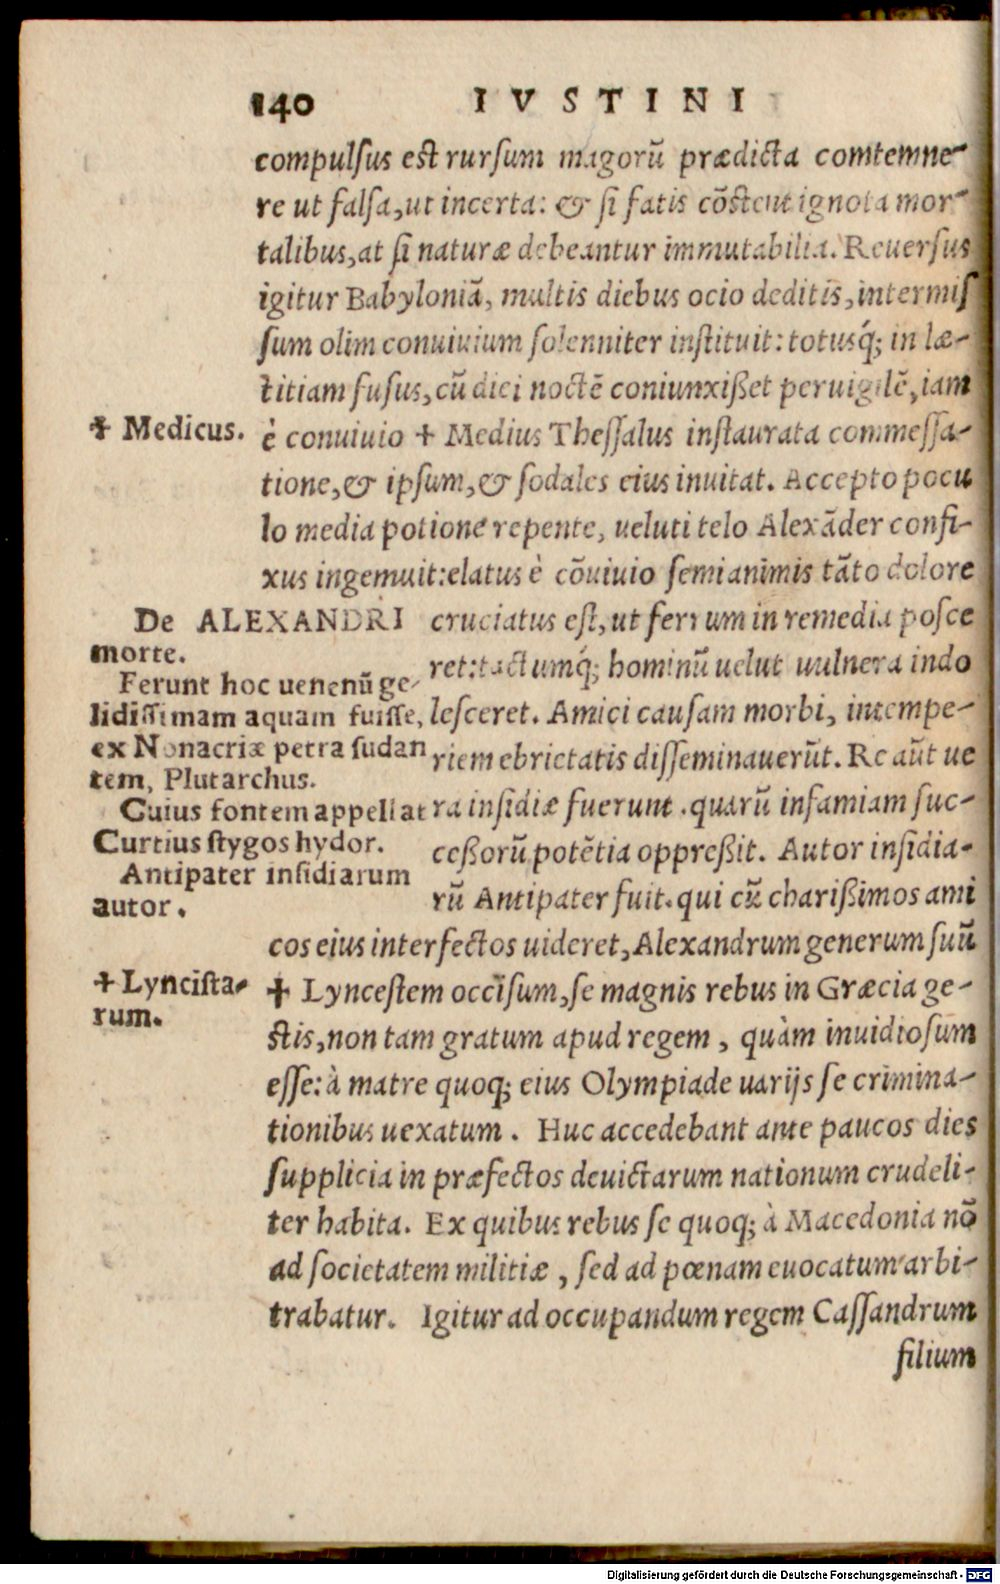 140 IVSTINI
compulsus est rursum magorũ prædicta comtemne-
re ut falsa, ut incerta: & si fatis cõstent ignota mor-
talibus, at si naturæ debeantur immutabilia. Reuersus
igitur Babyloniã, multis diebus ocio deditis, intermis
sum olim conuiuium solenniter instituit: totusq́; in læ-
titiam fusus, cũ diei noctẽ coniunxißet peruigilẽ, iam
✝ Medicus.
è conuiuio ✝ Medius Thessalus instaurata commessa-
tione, & ipsum, & sodales eius inuitat. Accepto pocu
lo media potione repente, ueluti telo Alexãder confi-
xus ingemuit: elatus è cõuiuio semianimis tãto dolore
De ALEXANDRI
morte.
Ferunt hoc uenenũ ge-
lidissimam aquam fuisse,
ex Nonacriæ petra sudan
tem, Plutarchus.
Cuius fontem appellat
Curtius stygos hydor.
Antipater insidiarum
autor.
cruciatus est, ut ferrum in remedia posce
ret: tactumq́; hominũ uelut uulnera indo
lesceret. Amici causam morbi, intempe-
riem ebrietatis disseminauerũt. Re aũt ue
ra insidiæ fuerunt. quarũ infamiam suc-
ceßorũ potẽtia oppreßit. Autor insidia-
rũ Antipater fuit. qui cũ charißimos ami
cos eius interfectos uideret, Alexandrum generum suũ
✝ Lyncista-
rum.
✝ Lyncestem occisum, se magnis rebus in Græcia ge-
stis, non tam gratum apud regem, quàm inuidiosum
esse: à matre quoq; eius Olympiade uarijs se crimina-
tionibus uexatum. Huc accedebant ante paucos dies
supplicia in præfectos deuictarum nationum crudeli-
ter habita. Ex quibus rebus se quoq; à Macedonia nõ
ad societatem militiæ, sed ad pœnam euocatum arbi-
trabatur. Igitur ad occupandum regem Cassandrum
filium
Digitalisierung gefördert durch die Deutsche Forschungsgemeinschaft - DFG